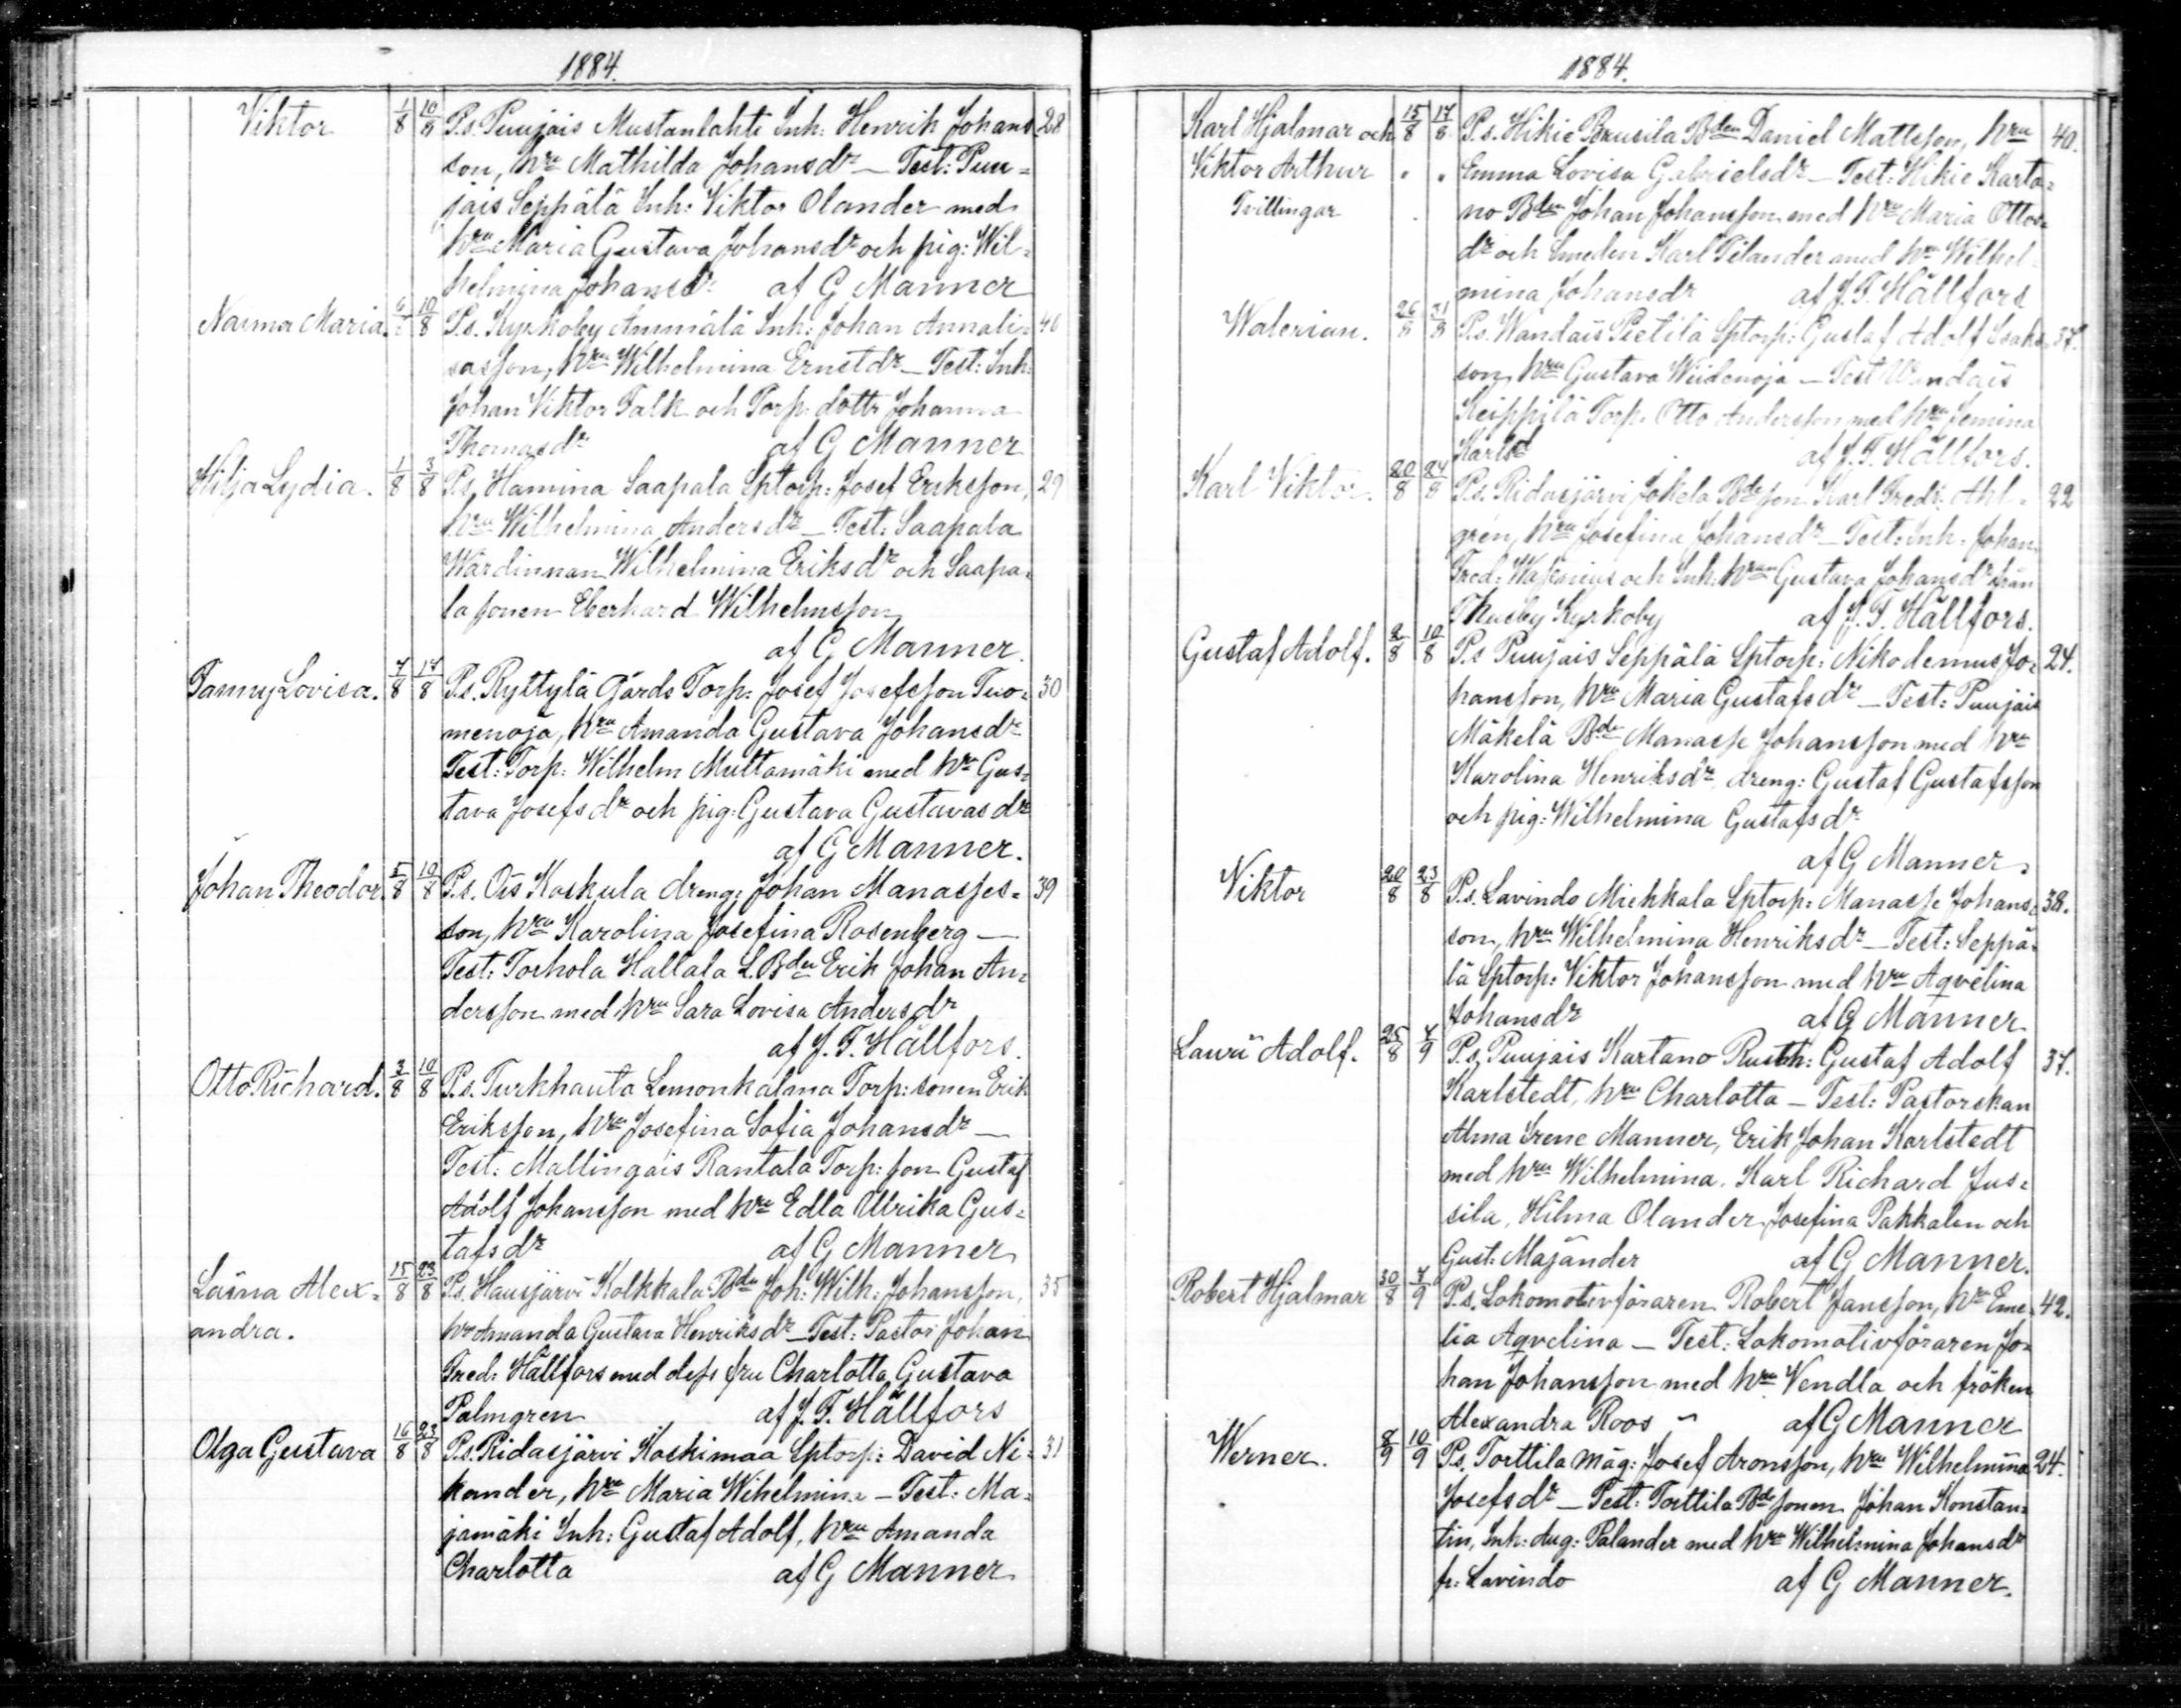 1884.
Viktor 1/8 10/8 P.s. Puujais Mustanlahti Inh: Henrik Johans 28
son, hru Mathilda Johansdr — Test: Puu=
jais Seppälä Inh: Viktor Olander med
hru Maria Gustava Johansdr och pig: Wil=
helmina Johansdr af G Manner
Naima Maria. 10/8 P.s. Kyrkoby Ammälä Inh: Johan Annali= 40
sasson, hru Wilhelmina Ernstdr — Test: Inh:
Johan Viktor Falk och Torp. dottr Johanna
Thomasdr af G Manner
Hilja Lydia. 1/8 3/8 P.s. Hamina Saapala Sptorp: Josef Eriksson, 29
hru Wilhelmina Andersdr — Test: Saapala
Wärdinnan Wilhelmina Eriksdr och Saapa=
la sonen Eberhard Wilhelmsson
af G Manner.
Fanny Lovisa. 7/8 17/8 P.s. Ryttylä Gårds Torp: Josef Josefsson Tuo= 30
menoja, hru Amanda Gustava Johansdr
Test: Torp: Wilhelm Muttamäki med hru Gus=
tava Josefsdr och pig: Gustava Gustavasdr
af G Manner.
Johan Theodor 5/8 10/8 P.s. Ois Koskula dreng: Johan Manasses= 39
son, hru Karolina Josefina Rosenberg —
Test: Torhola Hallala L.Bdn Erik Johan An=
dersson med hru Sara Lovisa Andersdr
af J. F. Hällfors.
Otto Richard. 3/8 10/8 P.s. Turkhauta Lemonkalma Torp: sonen Erik
Eriksson, hru Josefina Sofia Johansdr —
Test: Mallingais Rantala Torp: son Gustaf
Adolf Johansson med hru Edla Ulrika Gus=
tafsdr af G Manner
Laina Alex= 15/8 23/8 P.s. Hausjärvi Kolkkala Bdn Joh: Wilh: Johansson, 35
andra. hru Amanda Gustava Henriksdr — Test: Pastor Johan
Fred: Hällfors med dess fru Charlotta Gustava
Palmgren af J. F. Hällfors
Olga Gustava 16/8 23/8 P.s. Ridasjärvi Koskimaa Sptorp: David Ni= 31
kander, hru Maria Wihelmina — Test: Ma=
jamäki Inh: Gustaf Adolf, hru Amanda
Charlotta af G Manner
1884.
Karl Hjalmar och 15/8 17/8 P.s. Hikie Brusila Bden Daniel Mattsson, hru 40.
Viktor Arthur " " Emma Lovisa Gabrielsdr — Test: Hikie Karta=
Tvillingar no Bden Johan Johansson med hru Maria Ottos=
dr och Smeden Karl Tilander med hru Wilhel=
mina Johansdr af J. F. Hällfors
Walerian. 26/8 31/8 P.s. Wandais Pietilä Sptorp: Gustaf Adolf Isaks 37.
son, hru Gustava Wiidenoja — Test Wandais
Keippilä Torp. Otto Andersson med hru Jemina
Karlsd af J. F. Hällfors.
Karl Viktor. 20/8 24/8 P.s. Ridasjärvi Jokela Bdeson Karl Fredr. Ahl= 22
gren, hru Josefina Johansdr — Test: Inh. Johan
Fred: och Inh: hrun Gustava Johansdr från
Thusby Kyrkoby af J. F. Hällfors.
Gustaf Adolf. 2/8 10/8 P.s Puujais Seppälä Sptorp: Nikodemus Jo= 24.
hansson, hru Maria Gustafsdr — Test: Puujais
Mäkelä Bdn Manasse Johansson med hru
Karolina Henriksdr, dreng: Gustaf Gustafsson
och pig: Wilhelmina Gustafsdr
af G Manner.
Viktor 20/8 23/8 P.s. Lavindo Miekkala Sptorp: Manasse Johans= 38.
son, hru Wilhelmina Henriksdr — Test: Seppä=
lä Sptorp: Viktor Johansson med hru Aqvelina
Johansdr af G Manner
Lauri Adolf. 25/8 7/9 P.s. Puujais Kartano Rusth: Gustaf Adolf 37.
Karlstedt, hru Charlotta — Test: Pastorskan
Alma Irene Manner, Erik Johan Karlstedt
med hru Wilhelmina. Karl Richard Jus=
sila, Hilma Olander, Josefina Pakkalen och
Gust: Majander af G Manner.
Robert Hjalmar 30/8 7/9 P.s. Lokomotivföraren Robert Jansson, hru Eme= 42.
lia Aqvelina — Test: Lokomotivföraren Jo=
han Johansson med hru Vendla och fröken
Alexandra Roos af G Manner
Werner. 8/9 10/9 P.s. Torttila måg: Josef Aronsson, hru Wilhelmina 24.
Josefsdr — Test: Torttila Bdesonen Johan Konstan=
tin, Inh: Aug: Palander med hru Wilhelmina Johansdr
fr: Lavindo af G Manner.